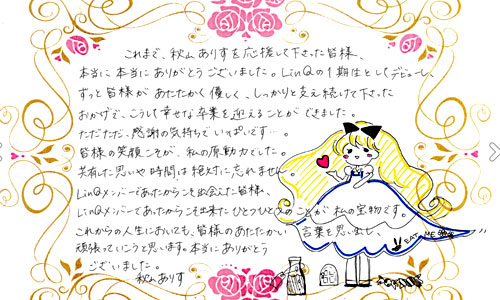 これまで、秋山ありすを応援して下さった皆様、
本当に本当にありがとうございました。LinQの1期生としてデビューし、
ずっと皆様が あたたかく 優しく、しっかりと支え続けて下さった
おかげで、こうして幸せな卒業を迎えることが できました。
ただただ、感謝の気持ちでいっぱいです…。
皆様の笑顔こそが、私の原動力でした。
共有した思いや時間は絶対に忘れません。
LinQメンバーであったからこそ出会えた皆様、
LinQメンバーであったからこそ出来た ひとつひとつのことが 私の宝物です。
これからの人生においても、皆様のあたたかい 言葉を思い出し、
頑張っていこうと思います。本当にありがとう
ございました。
秋山ありす
EAT ME